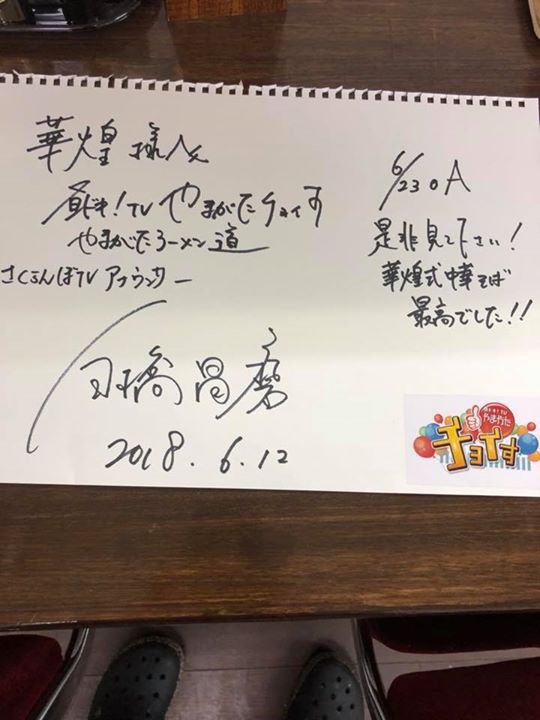 華煌様へ
昼ドキ!TV やまがたチョイす
やまがたラーメン道
さくらんぼTV アナウンサー
橋 昌磨
2018.6.12
6/23 OA
是非見て下さい!
華煌式中華そば
最高でした!!
昼ドキ!TV
やまがた
チョイす